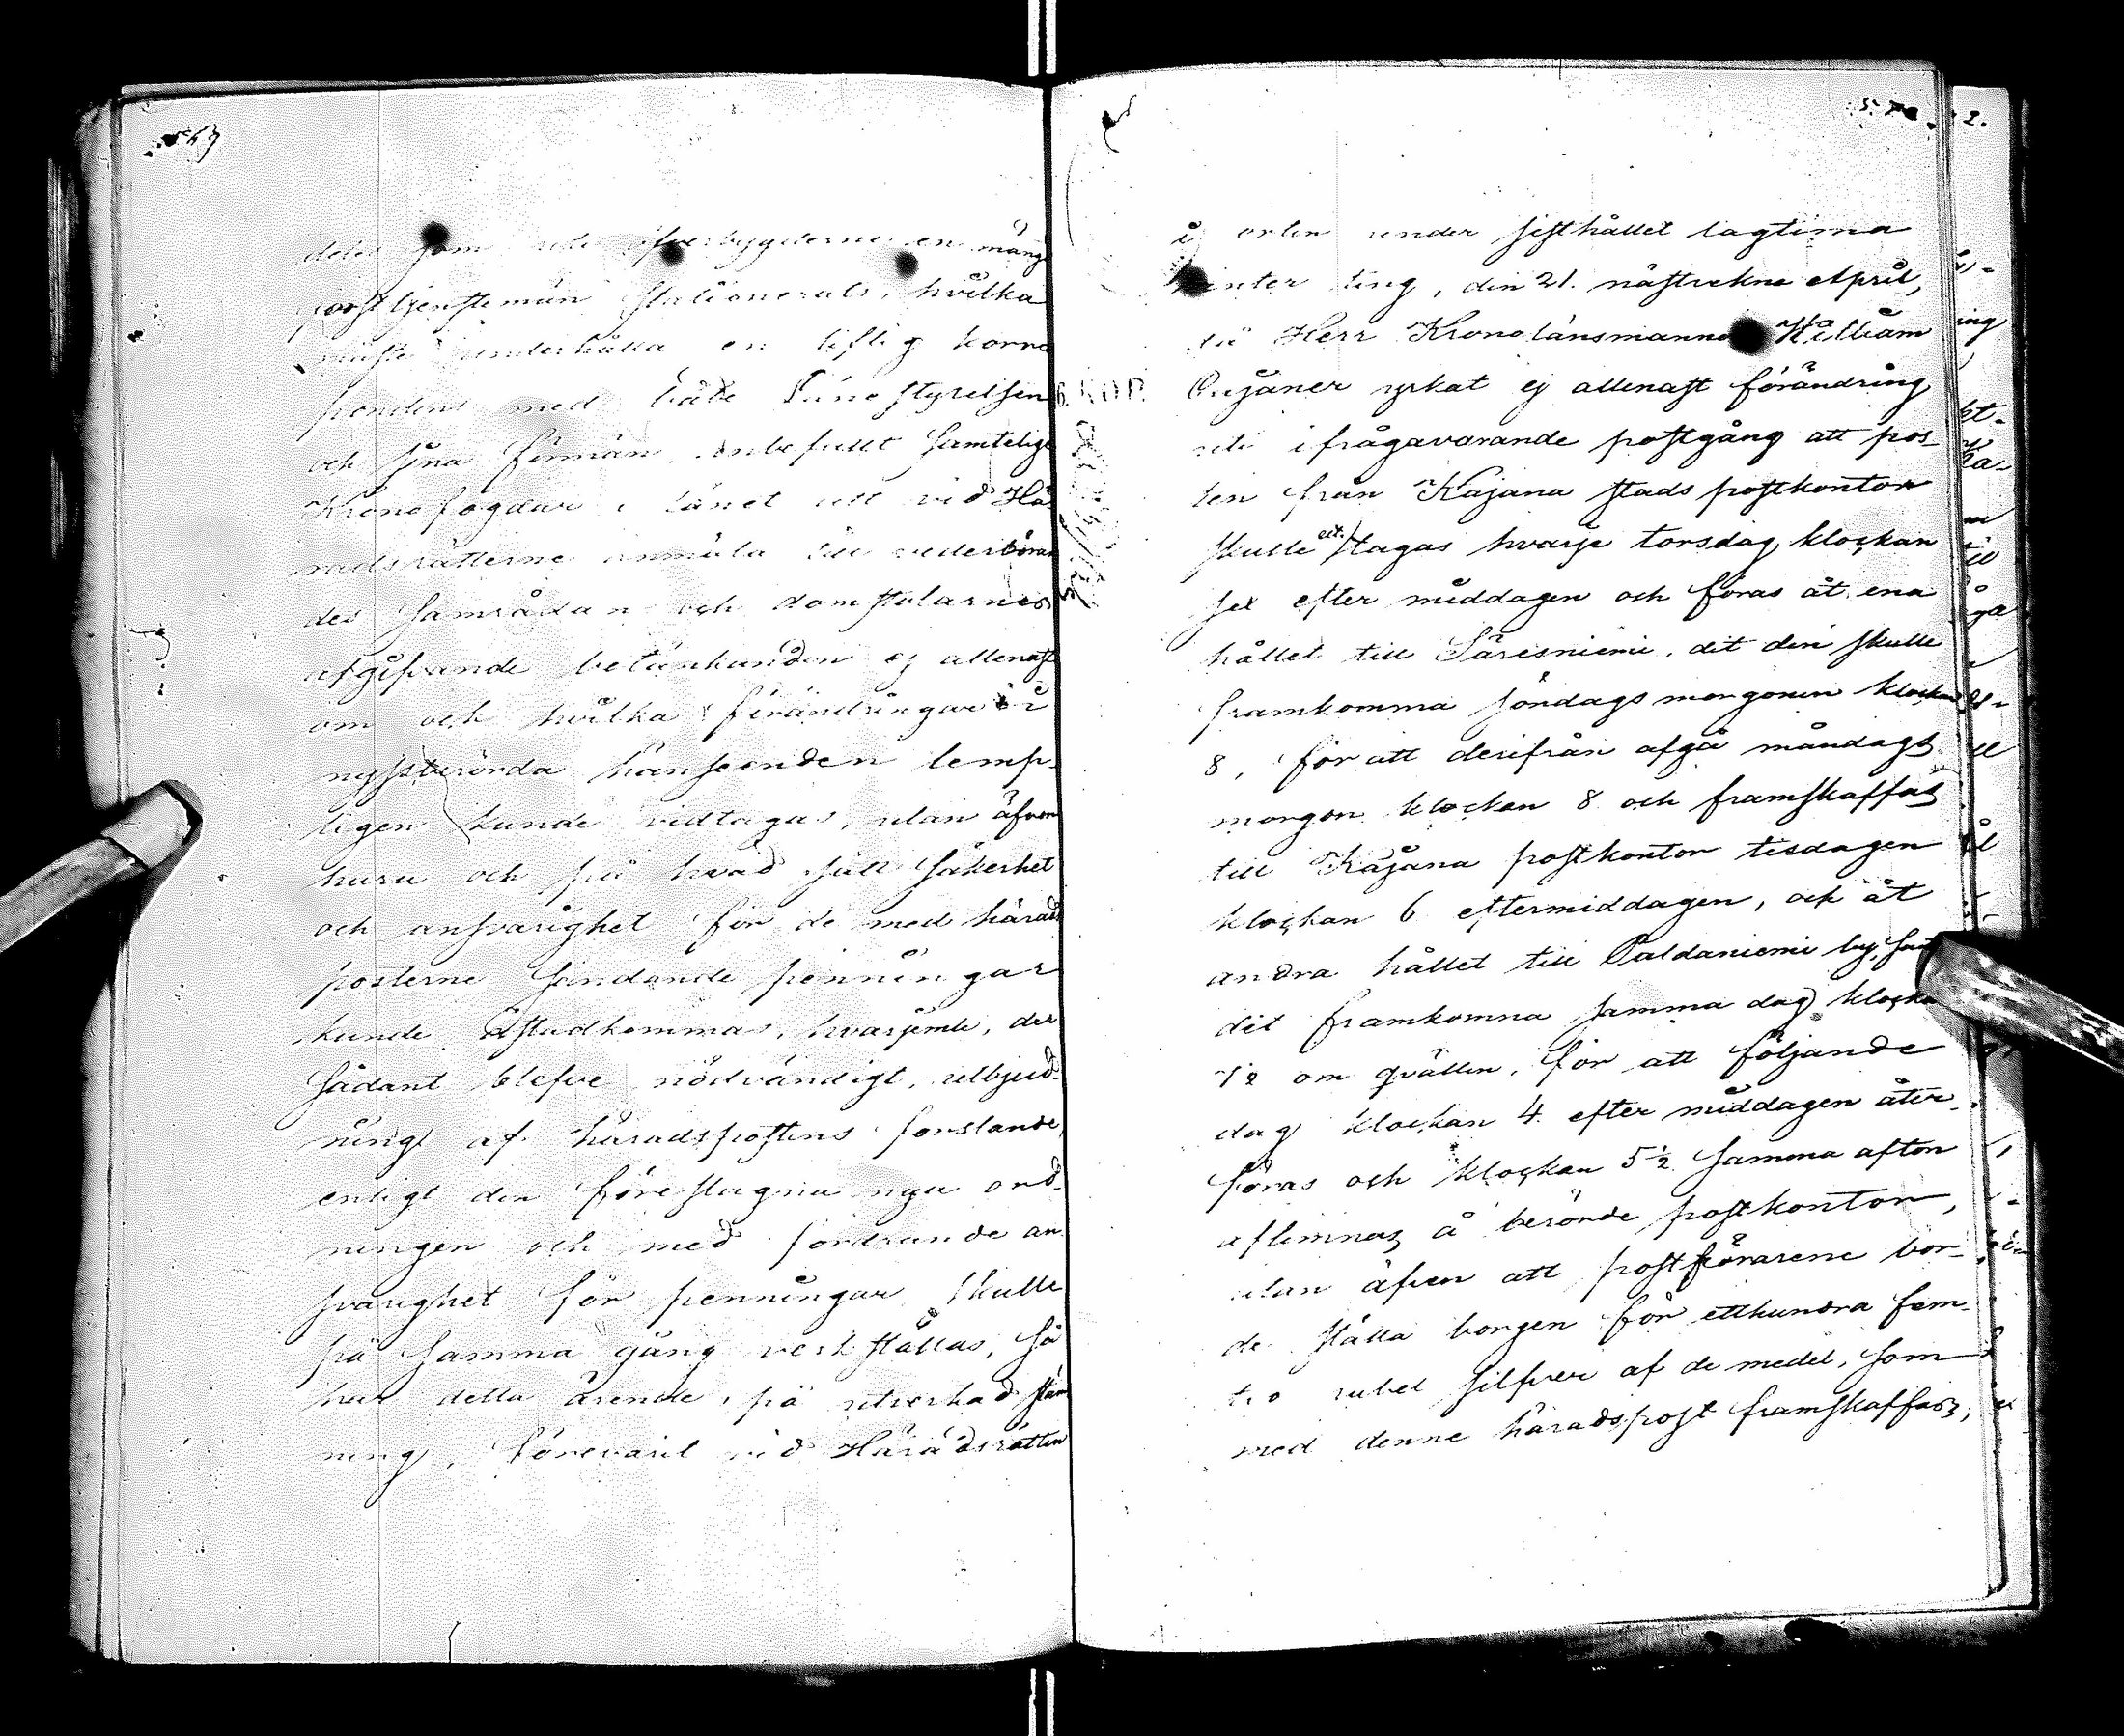 569
som uti öfverbygderne en mäng
posttjenstemän stationerats, hvilka
måste underhålla en liflig korre
spondens med både Länestyrelsen
och sina förmän, anbefallt samtelige
Kronofogdar i länet att vid Hä
radsrätterne anmäla till vederböran
des samrådan och domstolarnes
afgifvande betänkanden ej allenast
om och hvilka förändringar i
nyssberörda hänseenden lemp-
ligen kunde vidtagas, utan äfven
huru och på hvad sätt säkerhet
och ansvarighet för de med härads
posterne sändande penningar
kunde åstadkommas, hvarjemte, der
sådant blefve nödvändigt, utbjud-
ning af häradspostens forslande,
enligt den föreslagna nya ord-
ningen och med fordrande an
svarighet för penningar skulle
på samma gång verkställas, så
har detta ärende, på utverkad stäm
ning, förevarit vid Häradsrätten
i orten under sisthållet lagtima
vinter ting, den 21. nästvekne April,
då Herr Kronolänsmannen William
Cajaner yrkat ej allenast förändring
uti ifrågavarande postgång att pos-
ten från Kajana stads postkontor
skulle aftagas hvarje torsdag klockan
sex efter middagen och föras åt ena
hållet till Säresniemi, dit den skulle
framkomma söndags morgonen klockan
8, för att derifrån afgå måndags
morgon klockan 8 och framskaffas
till Kajana postkontor tisdagen
klockan 6 eftermiddagen, och åt
andra hållet till Paldaniemi by,
dit framkomna samma dag klocka
½8 om qvällen, för att följande
dag klockan 4 efter middagen åter-
föras och klockan 5½ samma afton
aflemnas å berörde postkontor,
utan äfven att postförarene bor-
de ställa borgen för etthundra fem-
tio rubel silfver af de medel, som
med denne häradspost framskaffas;